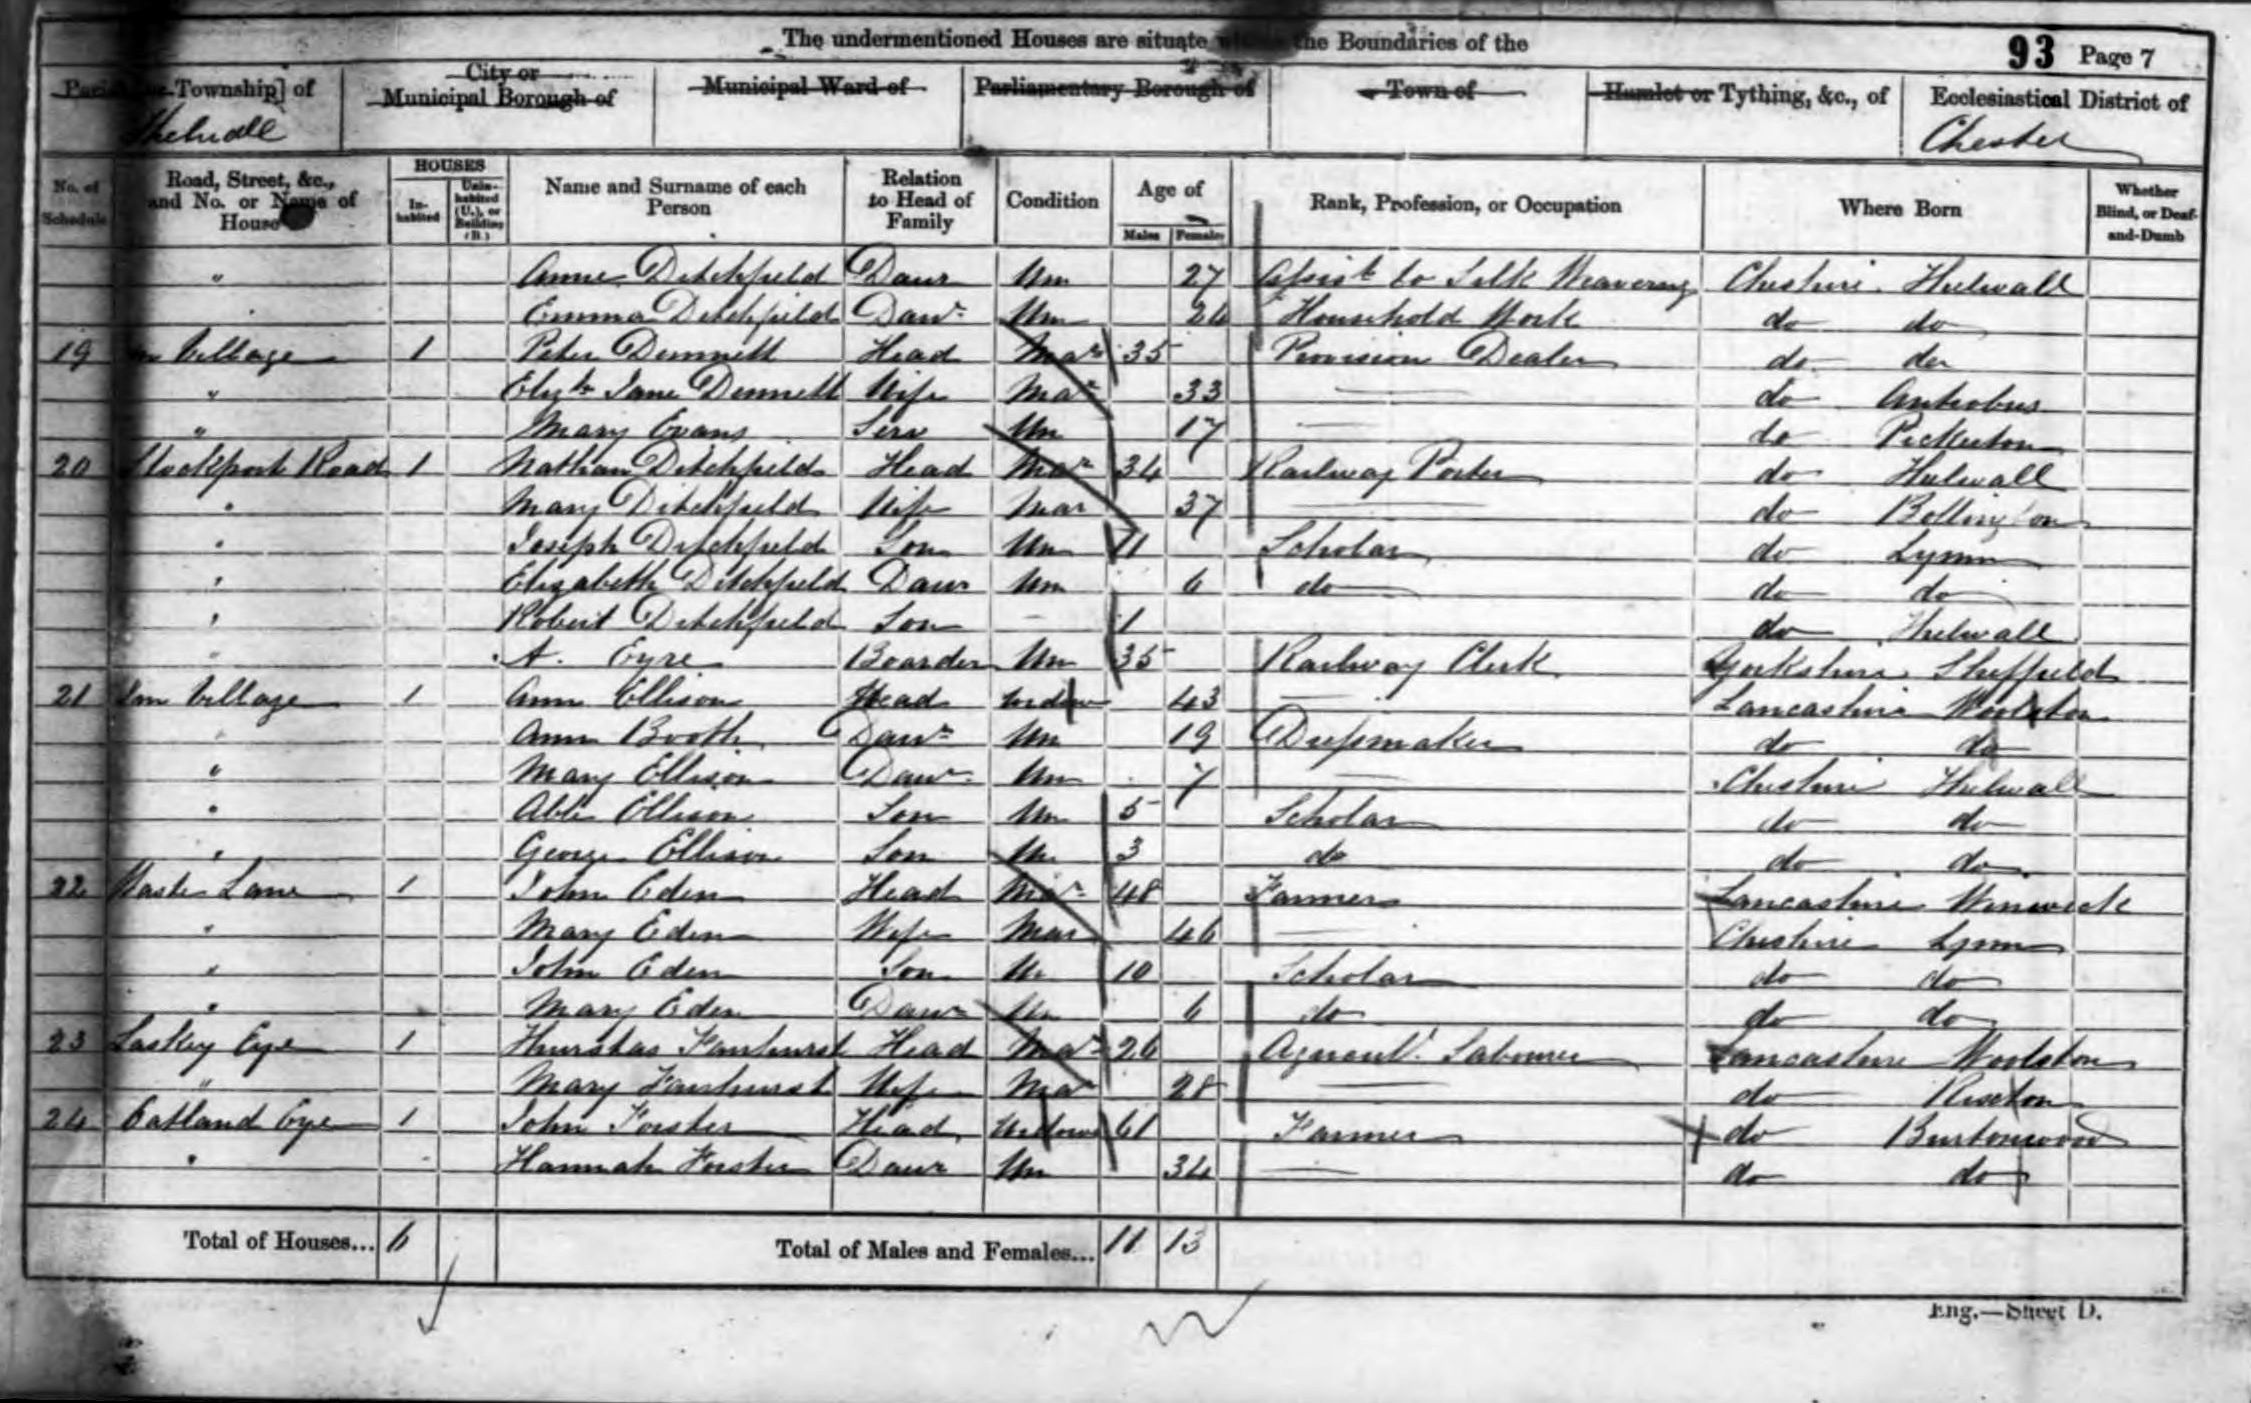 The undermentioned Houses are situate within the Boundaries of the
93 Page 7
Township] of
City or Municipal Borough of
Municipal Ward of
Parliamentary Borough of
Town of
Hamlet or Tything, &c., of
Ecclesiastical District of
Thelwall
Chester
No. of Schedule
Road, Street, &c., and No. or Name of House
HOUSES
In-habited
Unin-habited (U.), or Building (B.)
Name and Surname of each Person
Relation to Head of Family
Condition
Age of
Males Females
Rank, Profession, or Occupation
Where Born
Whether Blind, or Deaf-and-Dumb
" Anne Ditchfield Daur Un 27 Assist to Silk Weavering Cheshire Thelwall
Emma Ditchfield Daur Un 24 Household Work do do
19 Village 1 Peter Dennett Head Mar 35 Provision Dealer do do
" Elizth Jane Dennett Wife Mar 33 — do Antrobus
" Mary Evans Serv Un 17 — do Pickerton
20 Stockport Road 1 Nathan Ditchfield Head Mar 34 Railway Porter do Thelwall
" Mary Ditchfield Wife Mar 37 — do Bollington
" Joseph Ditchfield Son Un 11 Scholar do Lymm
" Elizabeth Ditchfield Daur Un 6 do do do
" Robert Ditchfield Son - 1 do Thelwall
" A. Eyre Boarder Un 35 Railway Clerk Yorkshire Sheffield
21 In Village 1 Ann Ellison Head Widow 43 — Lancashire Woolston
" Ann Booth Daur Un 19 Dressmaker do do
" Mary Ellison Daur Un 7 — Cheshire Thelwall
" Ellison Son Un 5 Scholar do do
" George Ellison Son Un 3 do do do
22 Lane 1 John Eden Head Mar 48 Farmer Lancashire Winwick
" Mary Eden Wife Mar 46 — Cheshire Lymm
" John Eden Son Un 10 Scholar do do
" Mary Eden Daur Un 6 do do do
23 Laskey Eye 1 Fairhurst Head Mar 26 Labourer Lancashire Woolston
" Mary Fairhurst Wife Mar 28 — do Rixton
24 Eatland Eye 1 John Forster Head Widower 61 Farmer do Burtonwood
" Hannah Forster Daur Un 34 — do do
Total of Houses... 6
Total of Males and Females... 11 13
Eng.—Sheet D.